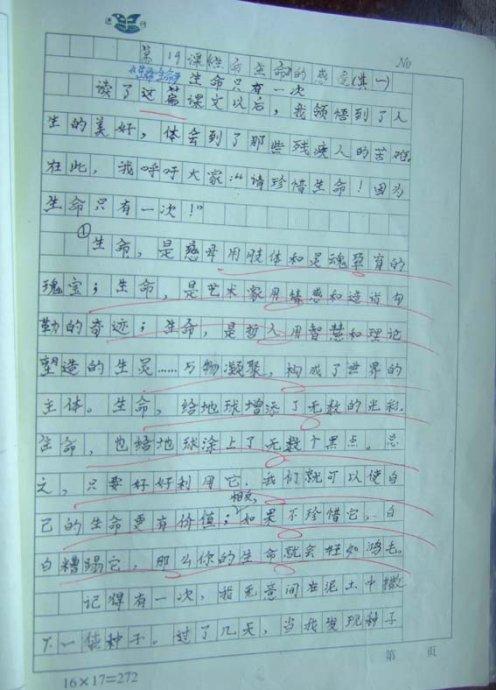 No
第19课结合生命的感受(生一)
我生命
生命只有一次
读了这篇课文以后，我领悟到了人
生的美好，体会到了那些残疾人的苦难。
在此，我呼吁大家："请珍惜生命！因为
生命只有一次！"
①生命，是慈母用肢体和灵魂孕育的
瑰宝；生命，是艺术家用情感和造诣勾
勒的奇迹；生命，是哲人用智慧和理论
塑造的生灵……与物凝聚，构成了世界的
主体。生命，给地球增添了无数的光彩。
生命，也给地球涂上了无数个黑点。总
之，只要好好利用它，我们就可以使自
相反，
己的生命更有价值；如果不珍惜它，白
白糟蹋它，那么你的生命就会轻如鸿毛。
记得有一次，我无意间在泥土中撒
下一棵种子。过了几天，当我发现种子
第 页
16×17=272